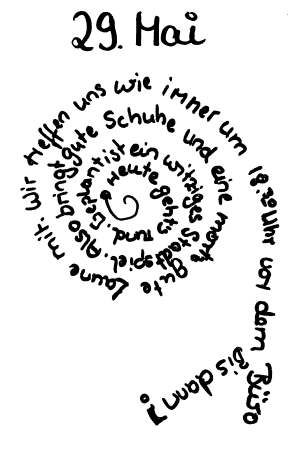 29. Mai
Heute geht's rund. Geplant ist ein witziges Stadtspiel. Also bringt gute Schuhe und eine mords gute Laune mit. Wir treffen uns wie immer um 18.30 Uhr vor dem Büro
Bis dann!